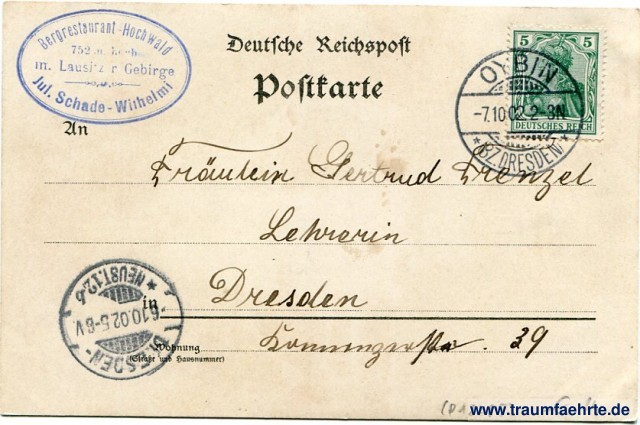 Bergrestaurant Hochwald
752 m
m. Lausitzer Gebirge
Jul. Schade-Wirhelmi
Deutsche Reichspost
Postkarte
5 5
DEUTSCHES REICH
OYBIN
-7.10 02.2-3N
* BZ. DRESDEN *
An
Fräulein Gertrud Frenzel
Lehrerin
in Dresden
Wohnung
(Straße und Hausnummer)
39
DRESDEN-
.10.02.5-6V
* NEUST. 12.
www.traumfaehrte.de